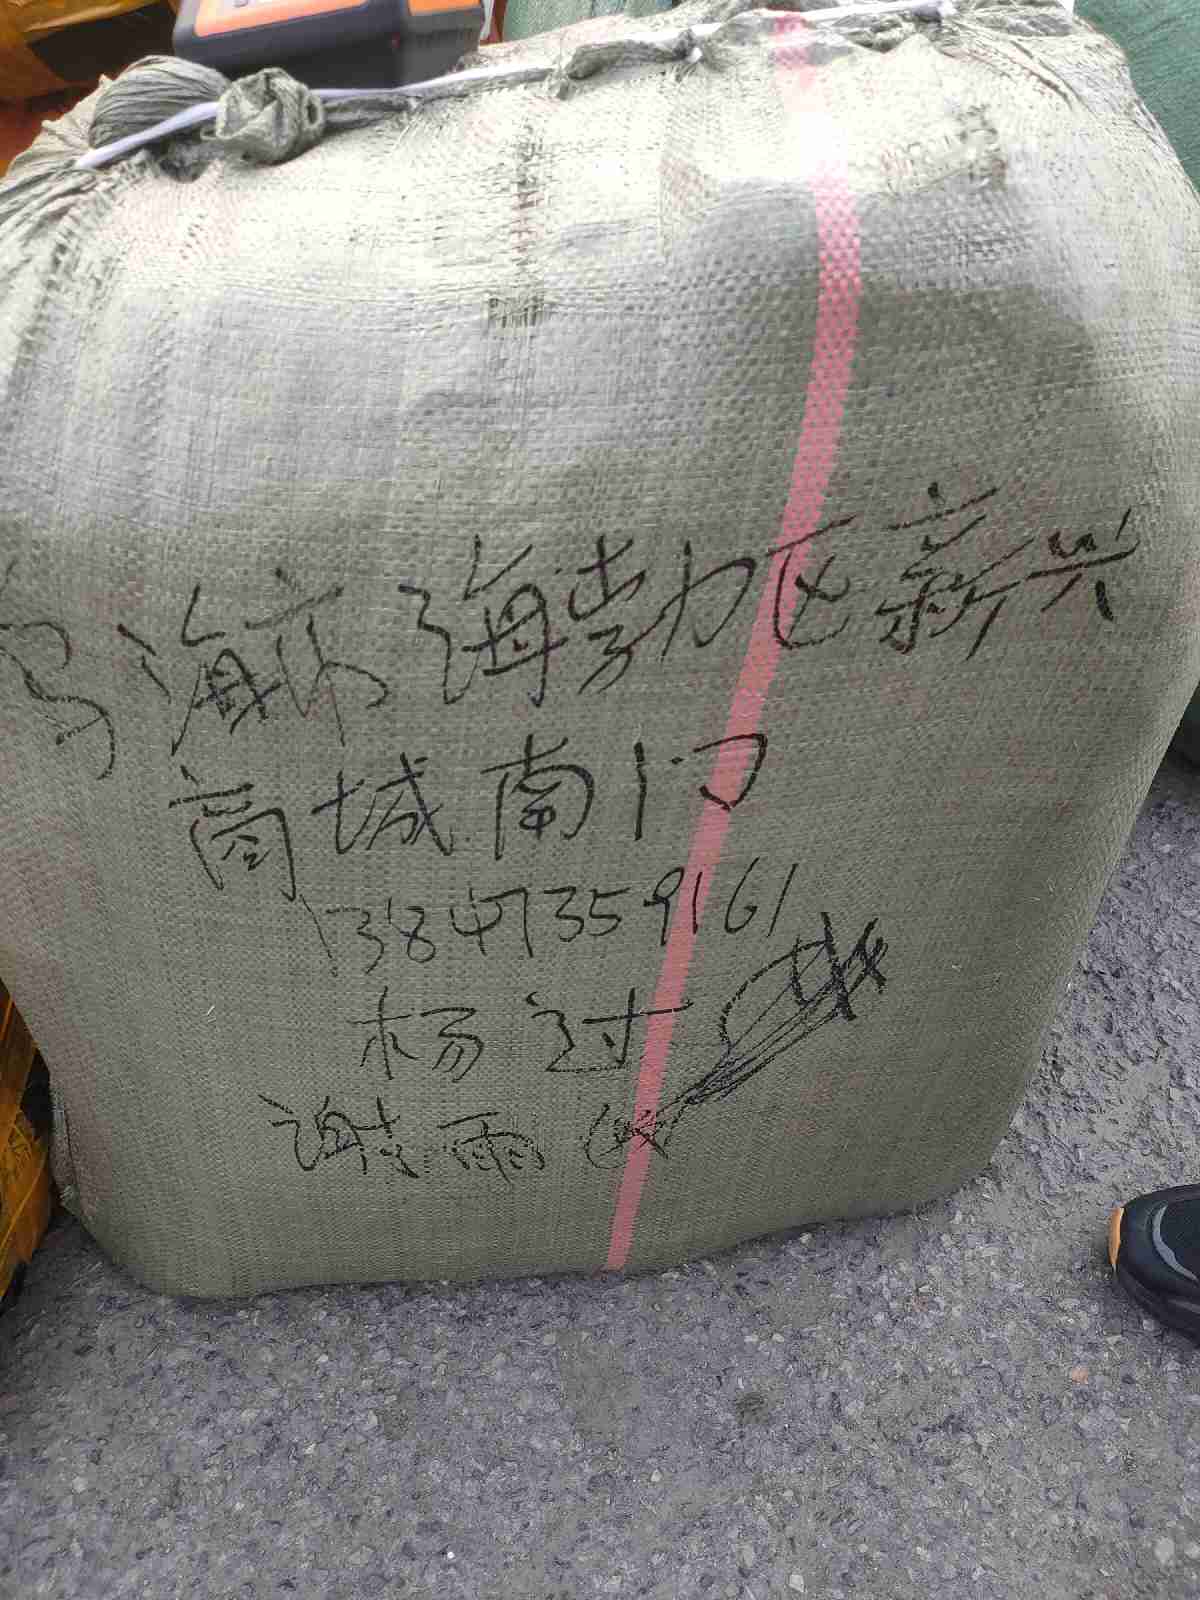 乌海市海勃区新兴
商城南门
13847359161
杨过
谢雨